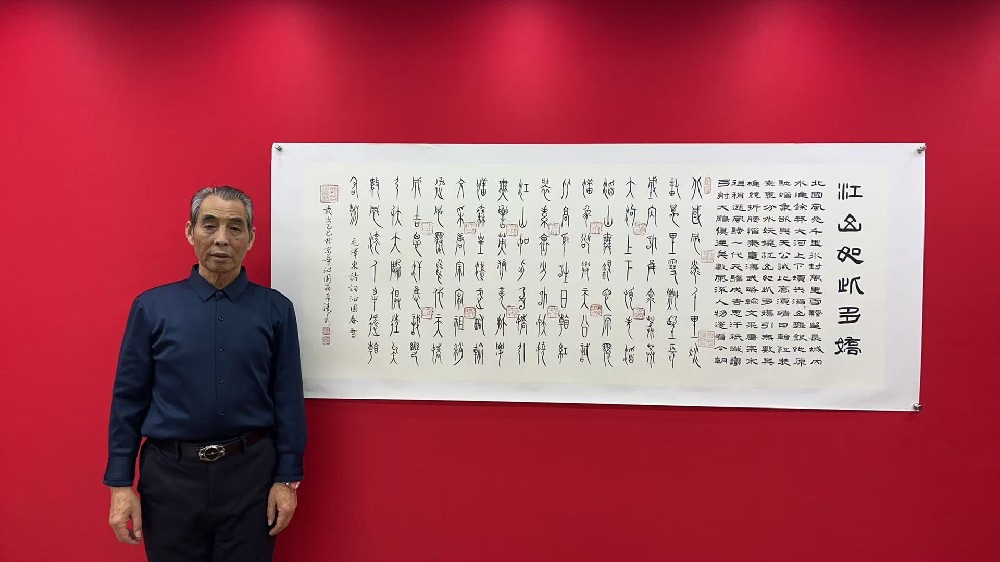 江山如此多嬌
北國風光千里冰封萬里雪飄望長城內
外惟餘莽莽大河上下頓失滔滔山舞銀蛇原
馳蠟象欲與天公試比高須晴日看紅裝
素裹分外妖嬈江山如此多嬌引無數英
雄競折腰惜秦皇漢武略輸文采唐宗宋
祖稍遜風騷一代天驕成吉思汗祗識彎
弓射大雕俱往矣數風流人物還看今朝
北國風光千里冰
封萬里雪飄望長
城內外惟餘莽莽
大河上下頓失滔
滔山舞銀蛇原馳
蠟象欲與天公試
比高須晴日看紅
裝素裹分外妖嬈
江山如此多嬌引
無數英雄競折腰
惜秦皇漢武略輸
文采唐宗宋祖稍
遜風騷一代天驕
成吉思汗只識彎
弓射大雕俱往矣
數風流人物還看
今朝
毛澤東詩詞沁園春雪
歲次乙巳於京華